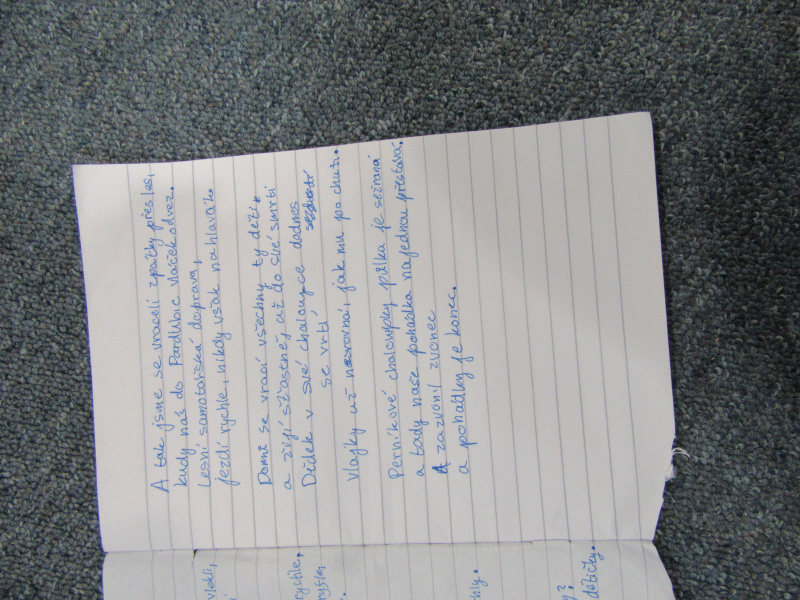 A tak jsme se vraceli zpátky přes les,
kudy nás do Pardubic vláček odvez.
Lesní samotářská doprava,
jezdí rychle, nikdy však na hlavách.
Domů se vrací všechny ty děti
a žijí šťastně, až do své smrti
Dědek v své chaloupce dodnes
se vrtí
vlajky už nesrovná, jak mu po chuti.
Perníkové chaloupky půlka je sežraná
a tady naše pohádka najednou přestává.
A zazvonil zvonec
a pohádky je konec.
vlekli,
rychle,
myslen
dětičky.